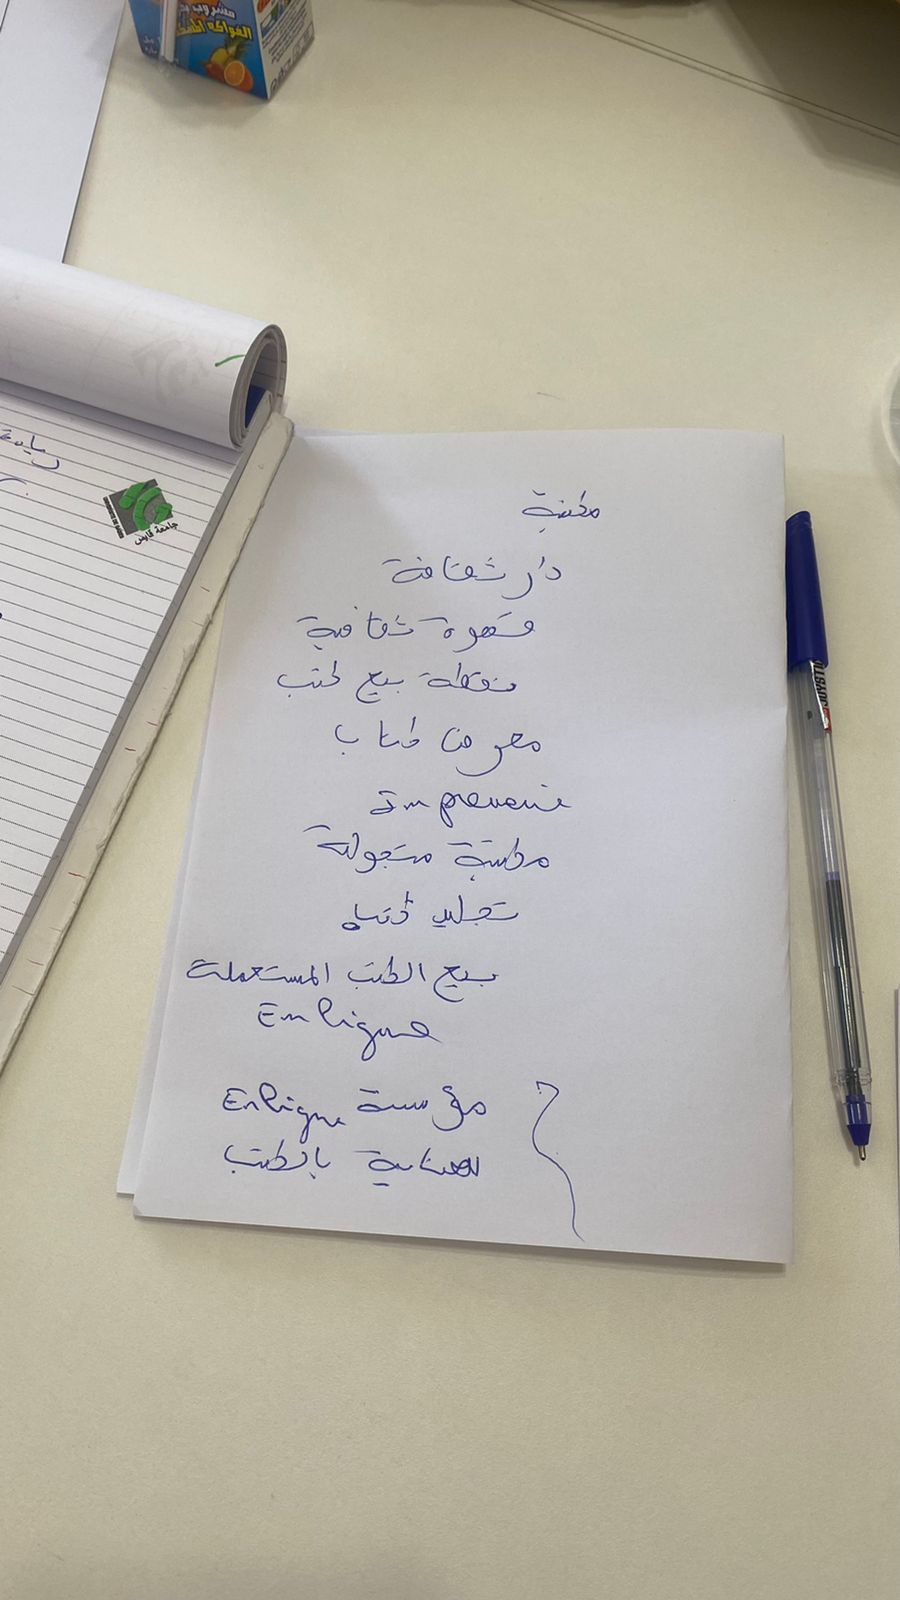 مشروب
الفواكه
جامعة قابس
مكتبة
دار ثقافة
قهوة ثقافية
نقطة بيع كتب
معرض كتاب
Imprimerie
مكتبة متجولة
تجليد كتب
بيع الكتب المستعملة
En ligne
مؤسسة En ligne
للعناية بالكتب